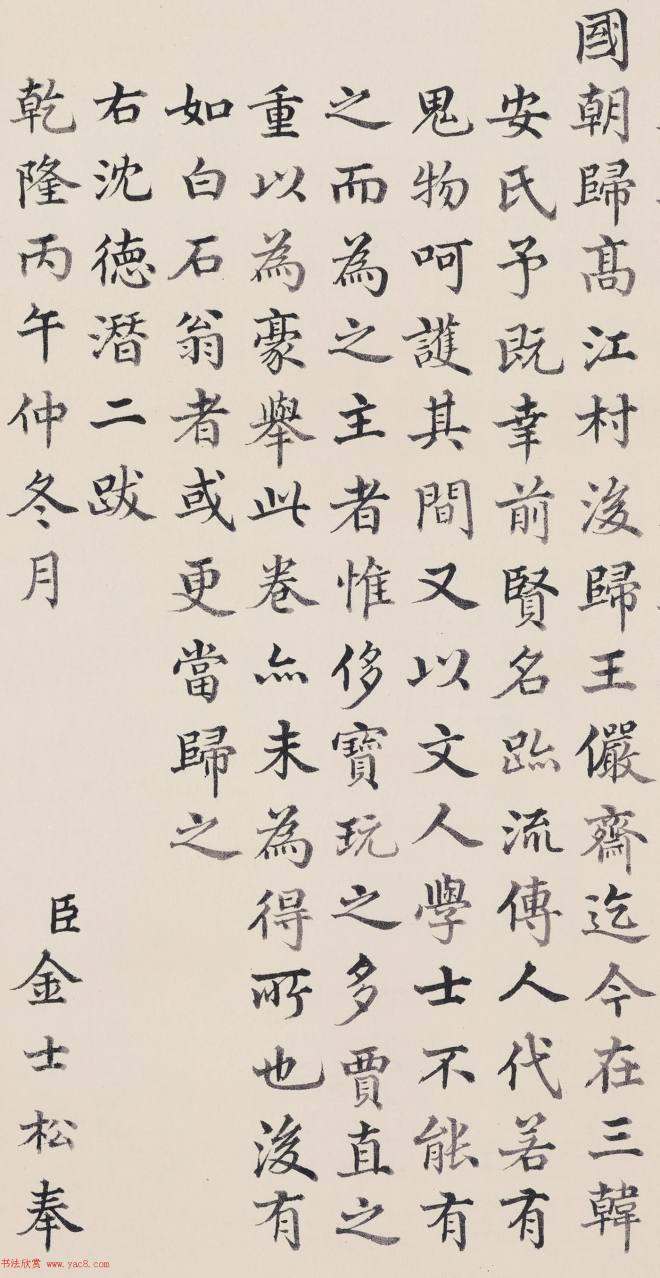 國朝歸髙江村後歸王儼齋迄今在三韓
安氏予既幸前賢名跡流傳人代若有
鬼物呵護其間又以文人學士不能有
之而為之主者惟侈寶玩之多賈直之
重以為豪舉此卷亦未為得所也後有
如白石翁者或更當歸之
右沈德潛二跋
乾隆丙午仲冬月
臣金士松奉
书法欣赏 www.yac8.com